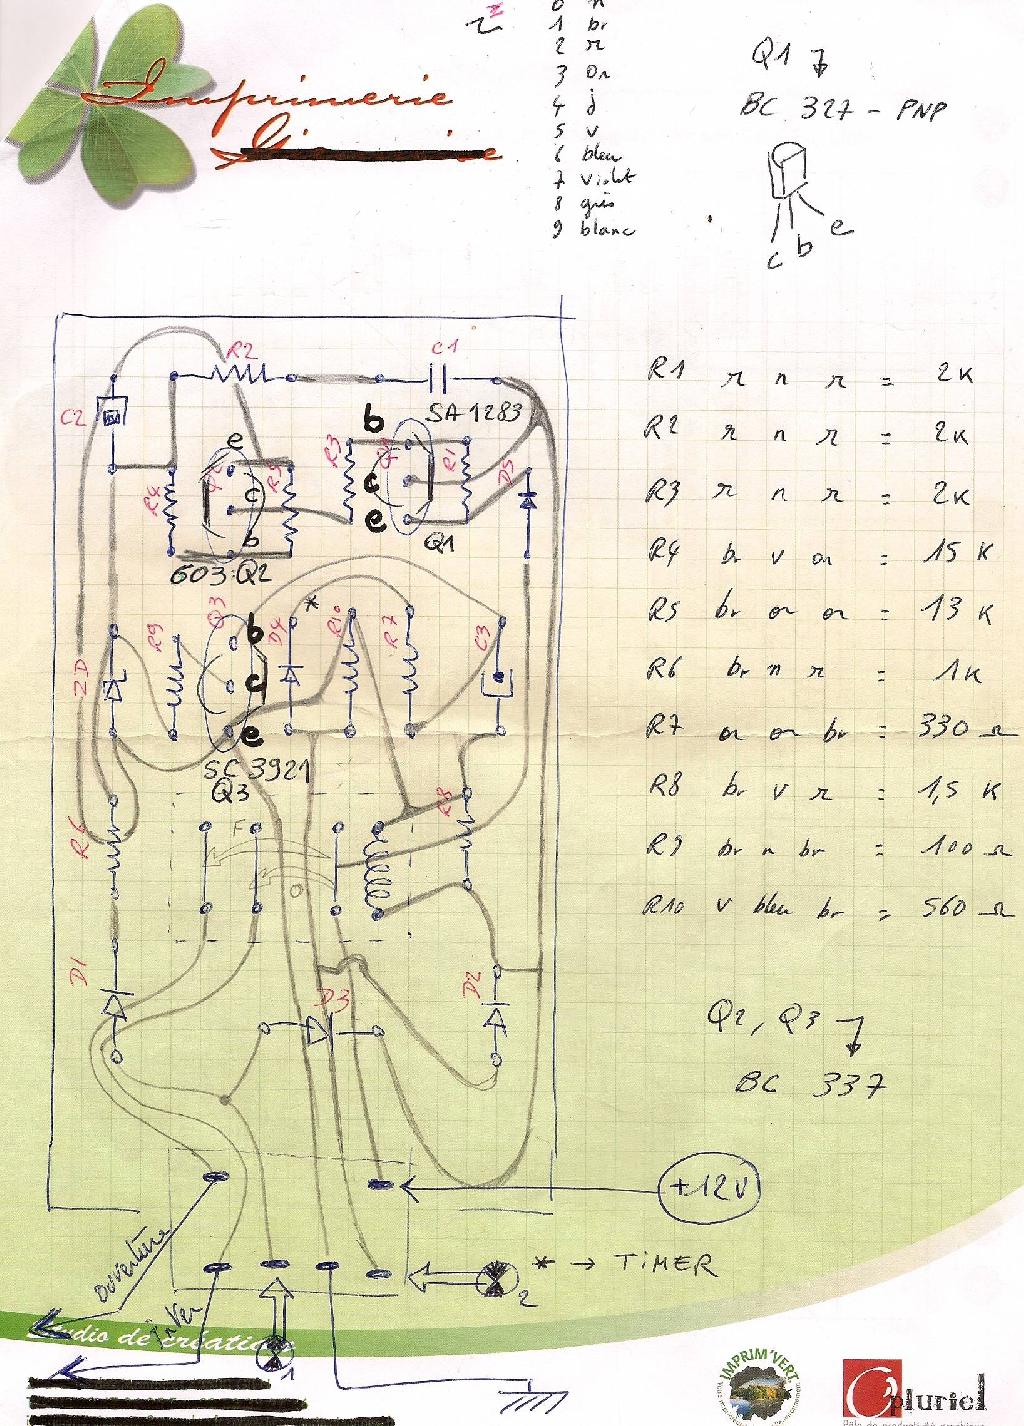 Imprimerie
0 n
1 br
2 r
3 or
4 j
5 v
6 bleu
7 violet
8 gris
9 blanc
Q1
BC 327 - PNP
c b e
R2 C1
C2 SA 1283
e b
R4 Q2 c R5 R3 c R1 D5
b e
603 Q2 Q1
Q3 b D4 * R10 R7
ZD R9 c C3
e
SC 3921
Q3
R6 F R8
D1 D3 D2
+12V
Ouverture
* → TIMER
2
1
R1 r n r = 2K
R2 r n r = 2K
R3 r n r = 2K
R4 br v or = 15 K
R5 br or or = 13 K
R6 br n r = 1K
R7 or or br = 330 Ω
R8 br v r = 1,5 K
R9 br n br = 100 Ω
R10 v bleu br = 560 Ω
Q2, Q3
BC 337
studio de création
IMPRIM'VERT
pluriel